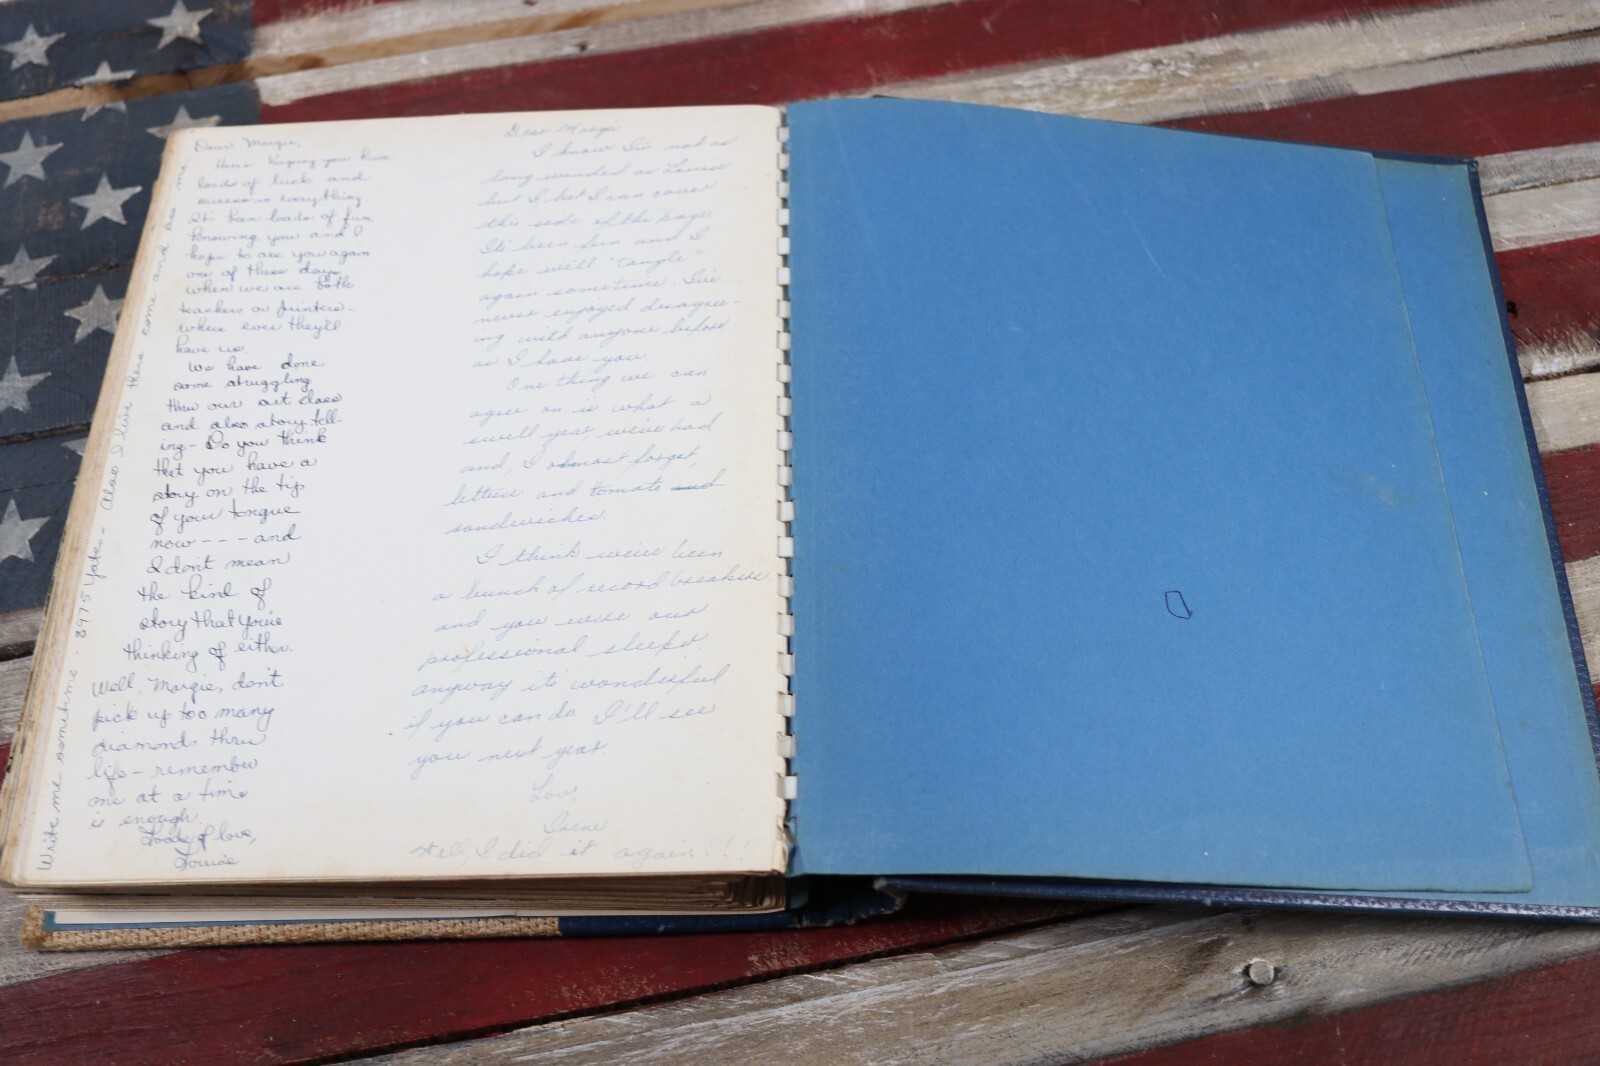 Dear Margie,
Here's hoping you have
loads of luck and
success in everything.
It's been loads of fun
knowing you and I
hope to see you again
one of these days
when we are both
teachers or printers -
where ever they'll
have us.
We have done
some struggling
thru our art class
and also story tell-
ing - Do you think
that you have a
story on the tip
of your tongue
now - - - and
I don't mean
the kind of
story that you're
thinking of either.
Well, Margie, don't
pick up too many
diamonds thru
life - remember
one at a time
is enough.
Loads of love,
Louise
Write me sometime. 8975 Yates - Also I live there come and see me.
Dear Margie
I know I'm not as
long winded as Louise
but I bet I can cover
this side of the page.
It's been fun and I
hope we'll "tangle"
again sometime. I've
never enjoyed disagree-
ing with anyone before
as I have you.
One thing we can
agree on is what a
swell year, we've had
and, I almost forgot,
lettuce and tomato and
sandwiches.
I think we've been
a bunch of record breakers
and you were our
professional sleeper.
anyway it's wonderful
if you can do I'll see
you next year
Love,
Irene
Well, I did it again!!!